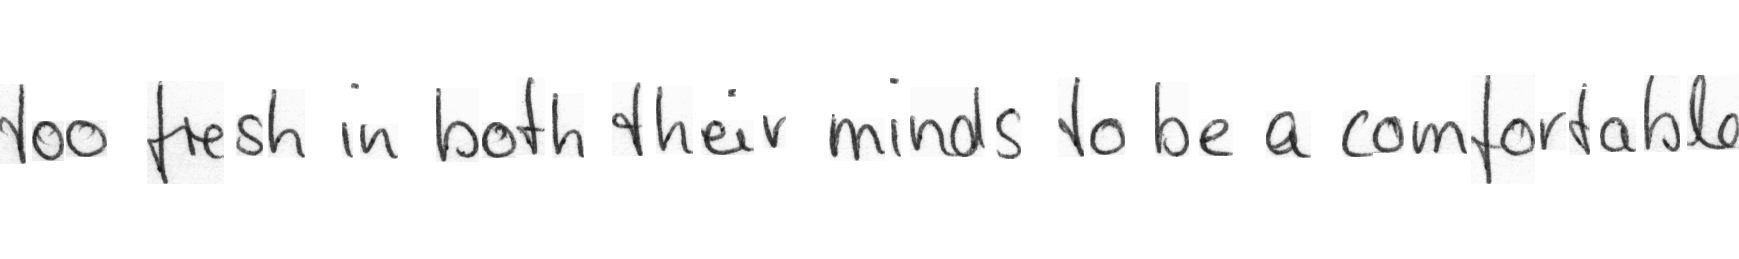 too fresh in both their minds to be a comfortable